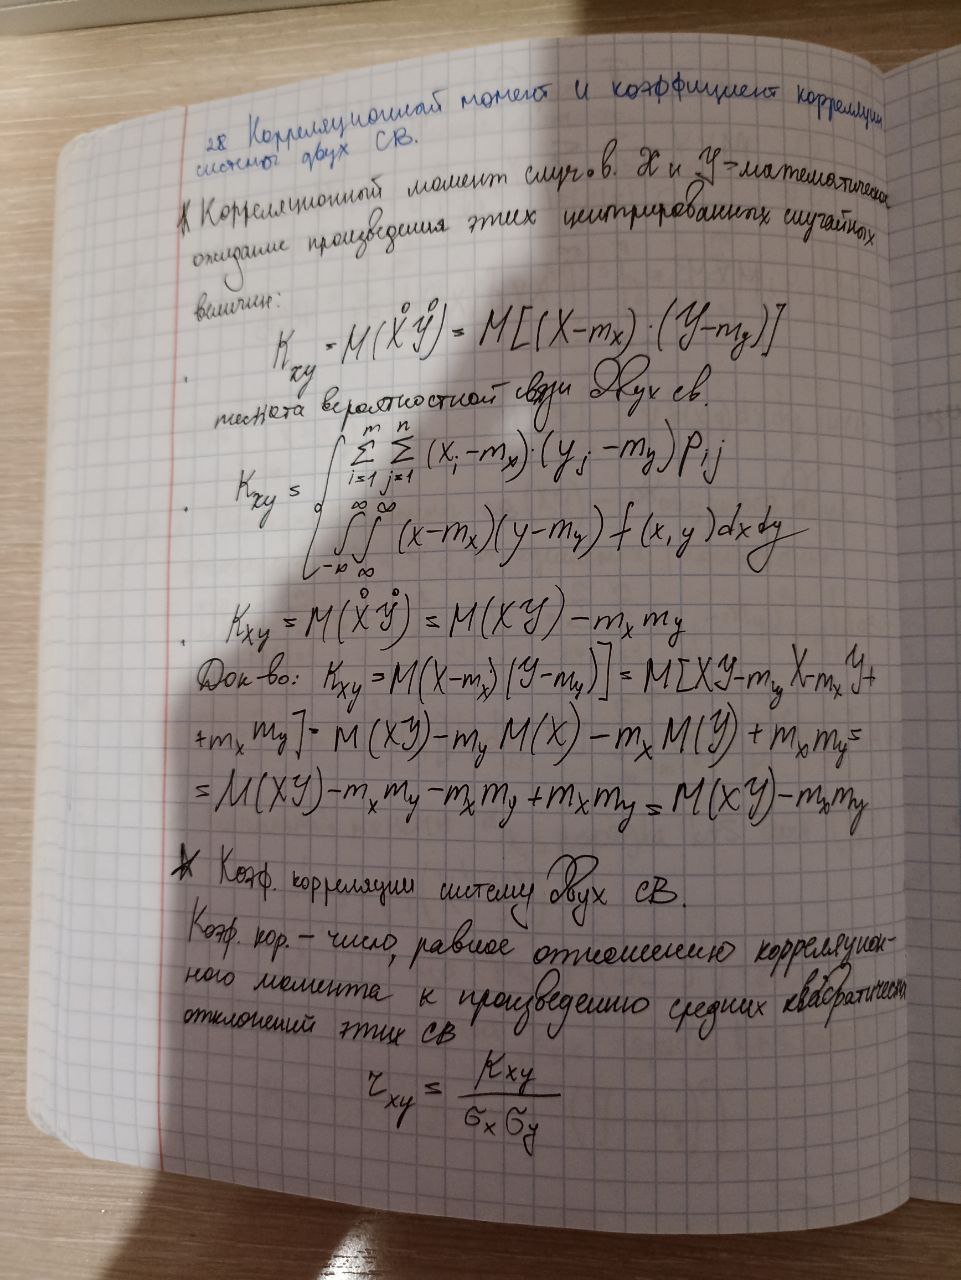 28 Корреляционный момент и коэффициент корреляции
системы двух СВ.
Корреляционный момент случ. в. X и Y – математическое
ожидание произведения этих центрированных случайных
величин:
K_xy = M(X̊Y̊) = M[(X−m_x)·(Y−m_y)]
теснота вероятностной связи двух св.
K_xy = { Σ_{i=1}^{m} Σ_{j=1}^{n} (x_i−m_x)·(y_j−m_y) p_ij
∫_{−∞}^{∞} ∫_{∞}^{∞} (x−m_x)(y−m_y) f(x,y)dxdy
K_xy = M(X̊Y̊) = M(XY) − m_x m_y
Док-во: K_xy = M(X−m_x)(Y−m_y)] = M[XY−m_y X−m_x Y+
+m_x m_y] = M(XY)−m_y M(X) − m_x M(Y) + m_x m_y =
= M(XY)−m_x m_y−m_x m_y+m_x m_y = M(XY)−m_x m_y
Коэф. корреляции систему двух СВ.
Коэф. кор. – число, равное отношению корреляцион-
ного момента к произведению средних квадратических
отклонений этих СВ
r_xy = K_xy / σ_x σ_y